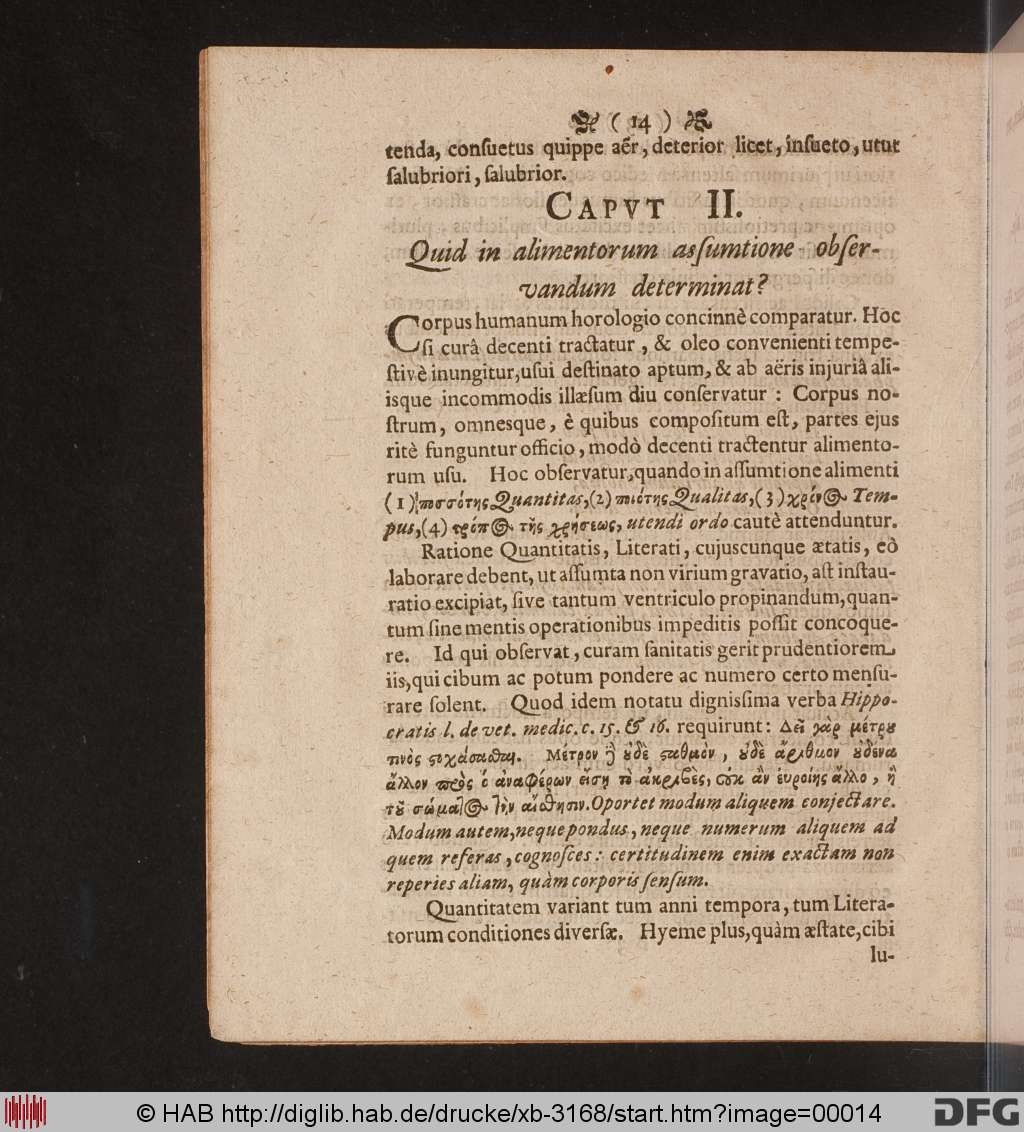 ( 14 )
tenda, conſuetus quippe aër, deterior licet, inſueto, utut
ſalubriori, ſalubrior.
CAPVT II.
Quid in alimentorum asſumtione obſer-
vandum determinat?
Corpus humanum horologio concinnè comparatur. Hoc
ſi curâ decenti tractatur, & oleo convenienti tempe-
ſtivè inungitur, uſui deſtinato aptum, & ab aëris injuriâ ali-
isque incommodis illæſum diu conſervatur : Corpus no-
ſtrum, omnesque, è quibus compoſitum eſt, partes ejus
ritè funguntur officio, modò decenti tractentur alimento-
rum uſu. Hoc obſervatur, quando in aſſumtione alimenti
(1) ποσσότης Quantitas, (2) ποιότης Qualitas, (3) χρόνος Tem-
pus, (4) τρόπος τῆς χρήσεως, utendi ordo cautè attenduntur.
Ratione Quantitatis, Literati, cujuscunque ætatis, eò
laborare debent, ut aſſumta non virium gravatio, aſt inſtau-
ratio excipiat, ſive tantum ventriculo propinandum, quan-
tum ſine mentis operationibus impeditis poſſit concoque-
re. Id qui obſervat, curam ſanitatis gerit prudentiorem
iis, qui cibum ac potum pondere ac numero certo menſu-
rare ſolent. Quod idem notatu digniſsima verba Hippo-
cratis l. de vet. medic. c. 15. & 16. requirunt: Δεῖ γὰρ μέτρου
τινὸς στοχάσασθαι. Μέτρον δὲ οὐδὲ σταθμὸν, οὐδὲ ἄριθμον οὐδένα
ἄλλον πρὸς ὁ ἀναφέρων εἴση τὸ ἀκριβὲς, οὐκ ἂν εὑροίης ἄλλο, ἢ
τοῦ σώματος τὴν αἴσθησιν. Oportet modum aliquem conjectare.
Modum autem, neque pondus, neque numerum aliquem ad
quem referas, cognoſces: certitudinem enim exactam non
reperies aliam, quàm corporis ſenſum.
Quantitatem variant tum anni tempora, tum Litera-
torum conditiones diverſæ. Hyeme plus, quàm æſtate, cibi
lu-
© HAB http://diglib.hab.de/drucke/xb-3168/start.htm?image=00014
DFG